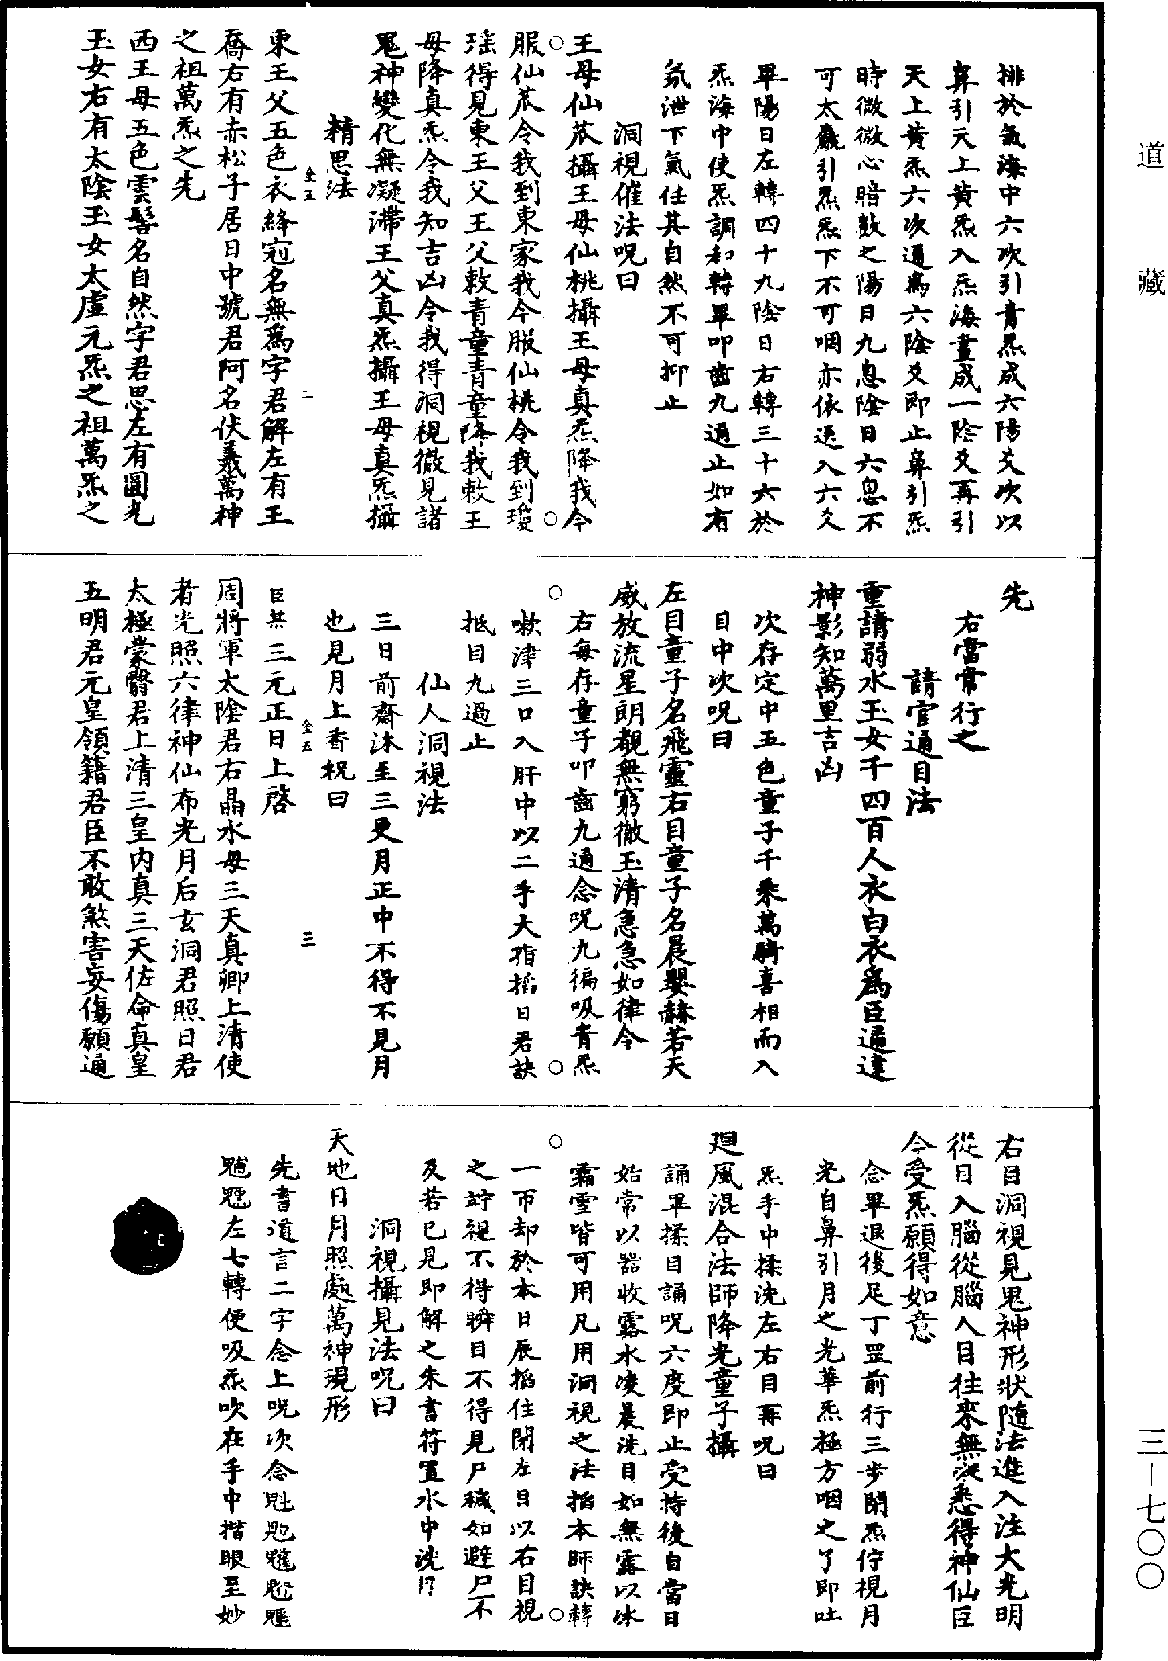 道藏
三—七〇〇
排於氣海中六次引青炁成六陽爻次以
鼻引天上黃炁入炁海畫成一陰爻再引
天上黃炁六次通為六陰爻即止鼻引炁
時微微心暗數之陽日九息陰日六息不
可太麤引炁炁下不可咽亦依還入六爻
畢陽日左轉四十九陰日右轉三十六於
炁海中使炁調和轉畢叩齒九通止如有
氣泄下氣任其自然不可抑止
洞視催法呪曰
王母仙苽攝王母仙桃攝王母真炁降我今
服仙苽令我到東家我今服仙桃令我到瓊
瑤得見東王父王父敕青童青童降我敕王
母降真炁令我知吉凶令我得洞視徹見諸
鬼神變化無凝滯王父真炁攝王母真炁攝
精思法
東王父五色衣絳冠名無為字君解左有王
喬右有赤松子居日中號君阿名伏羲萬神
之祖萬炁之先
西王母五色雲髻名自然字君思左有圓光
玉女右有太陰玉女太虛元炁之祖萬炁之
先
右當常行之
請官通目法
重請弱水玉女千四百人衣白衣為臣通達
神影知萬里吉凶
次存定中五色童子千乘萬騎喜相而入
目中次呪曰
左目童子名飛靈右目童子名晨嬰赫若天
威放流星朗觀無窮徹玉清急急如律令
右每存童子叩齒九通念呪九徧吸青炁
嗽津三口入肝中以二手大指掐日君訣
抵目九過止
仙人洞視法
三日前齋沐至三更月正中不得不見月
也見月上香祝曰
臣某三元正日上啓
周將軍太陰君右晶水母三天真卿上清使
者光照六律神仙布光月后玄洞君照日君
太極蒙翳君上清三皇內真三天佐命真皇
五明君元皇領籍君臣不敢煞害妄傷願通
右目洞視見鬼神形狀隨法進入注大光明
從目入腦從腦入目往來無沒悉得神仙臣
今受炁願得如意
念畢退後足丁罡前行三步閉炁佇視月
光自鼻引月之光華炁極方咽之了即吐
炁手中揉洗左右目再呪曰
廻風混合法師降光童子攝
誦畢揉目誦呪六度即止受持後自當日
始常以器收露水凌晨洗目如無露以冰
霜雪皆可用凡用洞視之法掐本師訣轉
一帀却於本日辰掐住閉左目以右目視
之諦視不得瞬目不得見尸穢如避尸不
及若已見即解之朱書符置水中洗目
洞視攝見法呪曰
天地日月照處萬神現形
先書道言二字念上呪次念
左七轉便吸炁吹在手中揩眼至妙